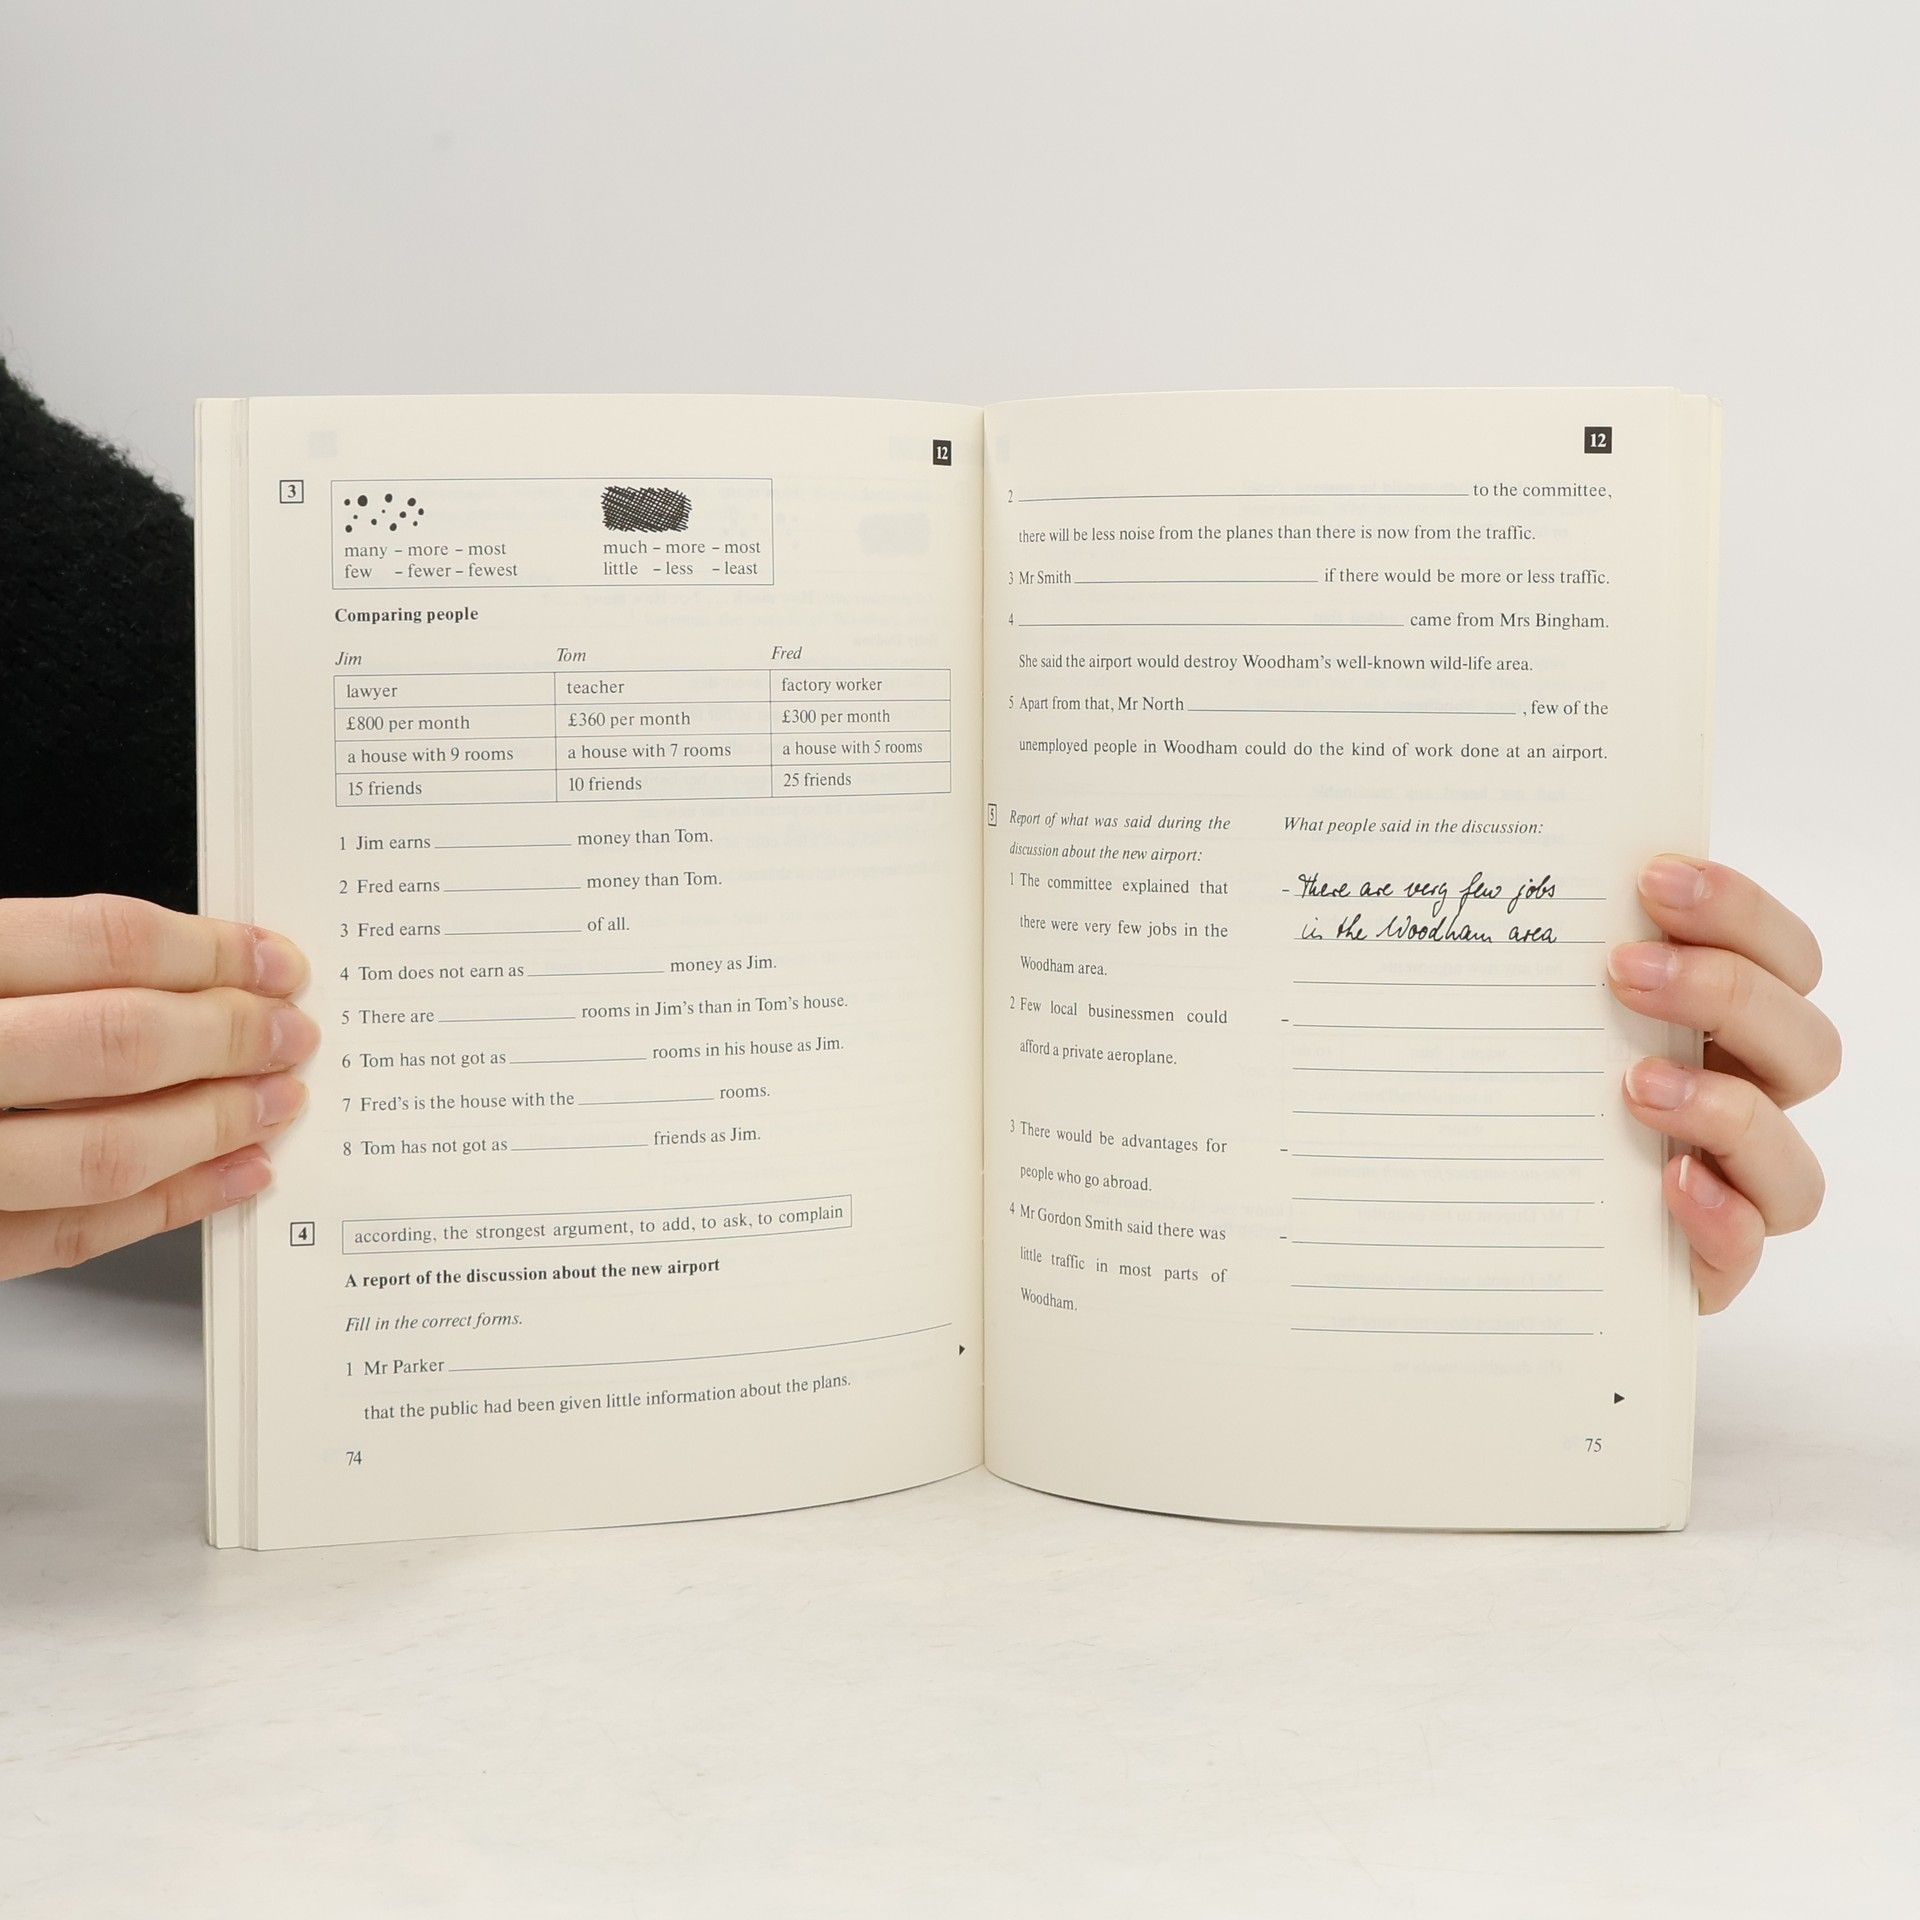 12
3
many – more – most
few – fewer – fewest
much – more – most
little – less – least
Comparing people
Jim Tom Fred
lawyer teacher factory worker
£800 per month £360 per month £300 per month
a house with 9 rooms a house with 7 rooms a house with 5 rooms
15 friends 10 friends 25 friends
1 Jim earns ____________ money than Tom.
2 Fred earns ____________ money than Tom.
3 Fred earns ____________ of all.
4 Tom does not earn as ____________ money as Jim.
5 There are ____________ rooms in Jim's than in Tom's house.
6 Tom has not got as ____________ rooms in his house as Jim.
7 Fred's is the house with the ____________ rooms.
8 Tom has not got as ____________ friends as Jim.
4 according, the strongest argument, to add, to ask, to complain
A report of the discussion about the new airport
Fill in the correct forms.
1 Mr Parker ____________
that the public had been given little information about the plans.
74
12
2 ____________ to the committee,
there will be less noise from the planes than there is now from the traffic.
3 Mr Smith ____________ if there would be more or less traffic.
4 ____________ came from Mrs Bingham.
She said the airport would destroy Woodham's well-known wild-life area.
5 Apart from that, Mr North ____________ , few of the
unemployed people in Woodham could do the kind of work done at an airport.
5
Report of what was said during the
discussion about the new airport:
1 The committee explained that
there were very few jobs in the
Woodham area.
2 Few local businessmen could
afford a private aeroplane.
3 There would be advantages for
people who go abroad.
4 Mr Gordon Smith said there was
little traffic in most parts of
Woodham.
What people said in the discussion:
– There are very few jobs
in the Woodham area
____________ .
– ____________
____________
____________ .
– ____________
____________ .
– ____________
____________
____________ .
75